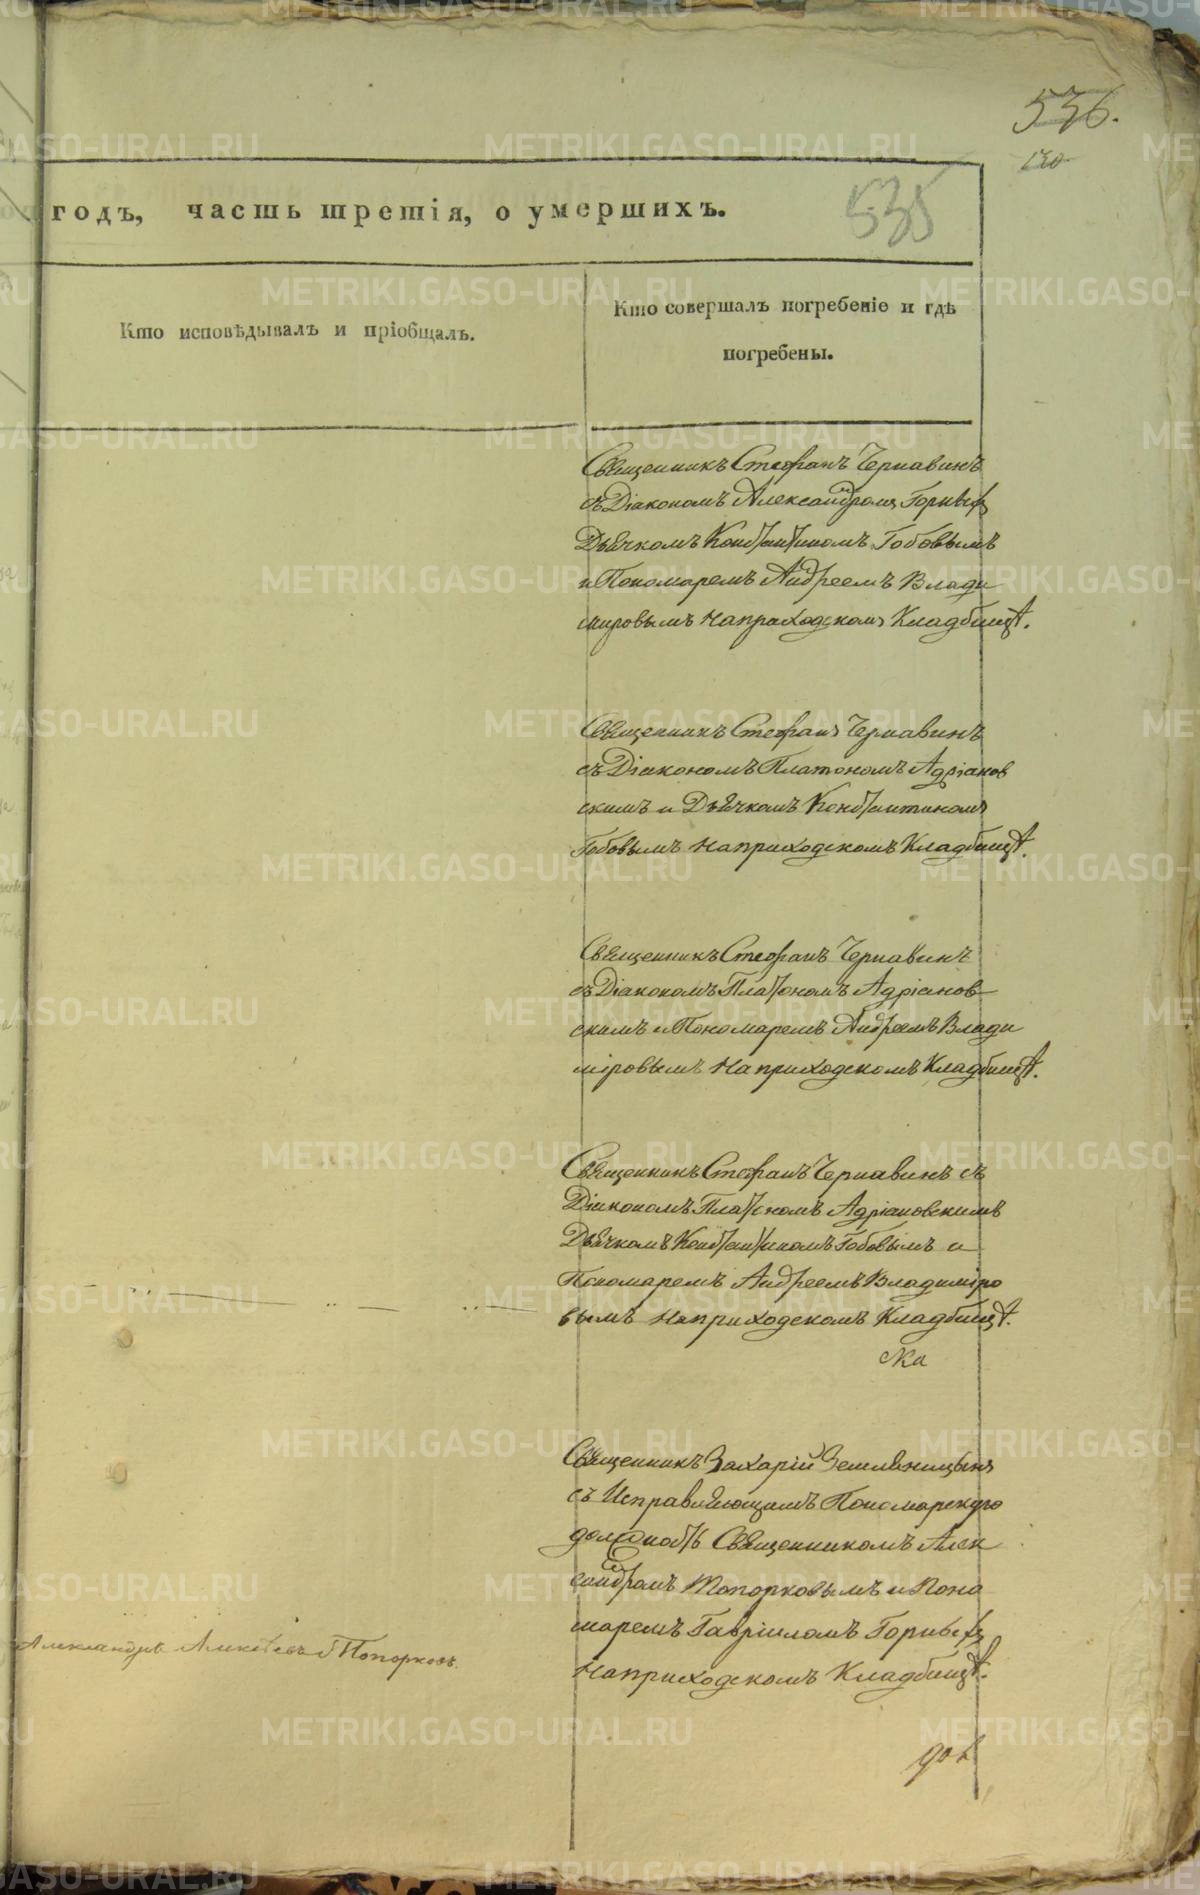 536.
130
535
годъ, часть третія, о умершихъ.
Кто исповѣдывалъ и пріобщалъ.
Кто совершалъ погребеніе и гдѣ
погребены.
Священникъ Стефанъ Чернавинъ
съ Діакономъ Александромъ Горныхъ
Дьячкомъ Константиномъ Гобовымъ
и Пономаремъ Андреемъ Влади
мировымъ на приходскомъ Кладбищѣ.
Священникъ Стефанъ Чернавинъ
съ Діакономъ Платономъ Адріанов
скимъ и Дьячкомъ Константиномъ
Гобовымъ на приходскомъ Кладбищѣ.
Священникъ Стефанъ Чернавинъ
съ Діакономъ Платономъ Адріанов
скимъ и Пономаремъ Андреемъ Влади
міровымъ на приходскомъ Кладбищѣ.
Священникъ Стефанъ Чернавинъ съ
Діакономъ Платономъ Адріановскимъ
Дьячкомъ Константиномъ Гобовымъ и
Пономаремъ Андреемъ Владиміро
вымъ на приходскомъ Кладбищѣ.
Священникъ Захарій Земляницынъ
съ Исправляющимъ Пономарскую
должность Священникомъ Алек
сандромъ Топорковымъ и Поно
маремъ Гавріиломъ Горныхъ
на приходскомъ Кладбищѣ.
Александръ Алексѣевъ Топорковъ.
METRIKI.GASO-URAL.RU